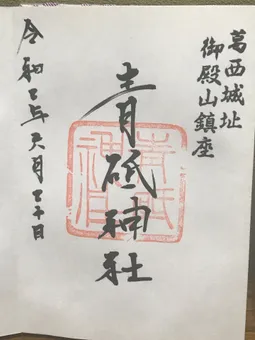 葛西城址
御殿山鎮座
青砥神社
令和二年六月二十日